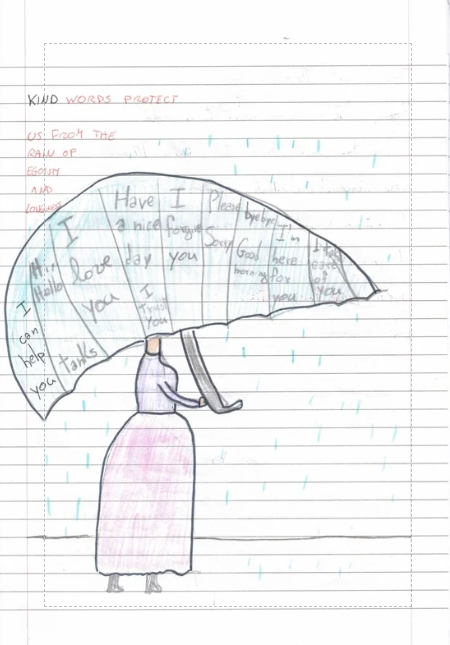 KIND WORDS PROTECT
US FROM THE
RAIN OF
EGOISM
AND
I
can
help
you
Hallo
I
love
you
tanks
Have
a nice
day
I
Trust
you
I
forgive
you
Please
Sorry
byebye
Good
morning
I'm
here
for
you
I take
care
of
you